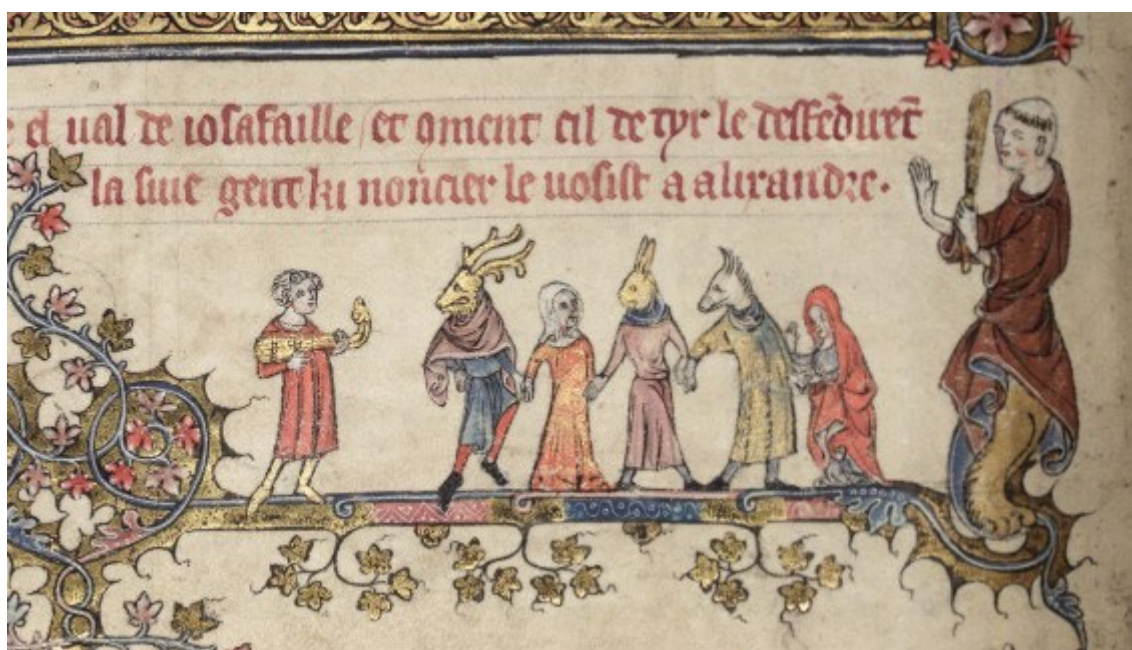 el ual de iosafaille / et ꝯment cil de tyr le deffēdirēt
la siue gent ki noncier le uosist a alixandre.